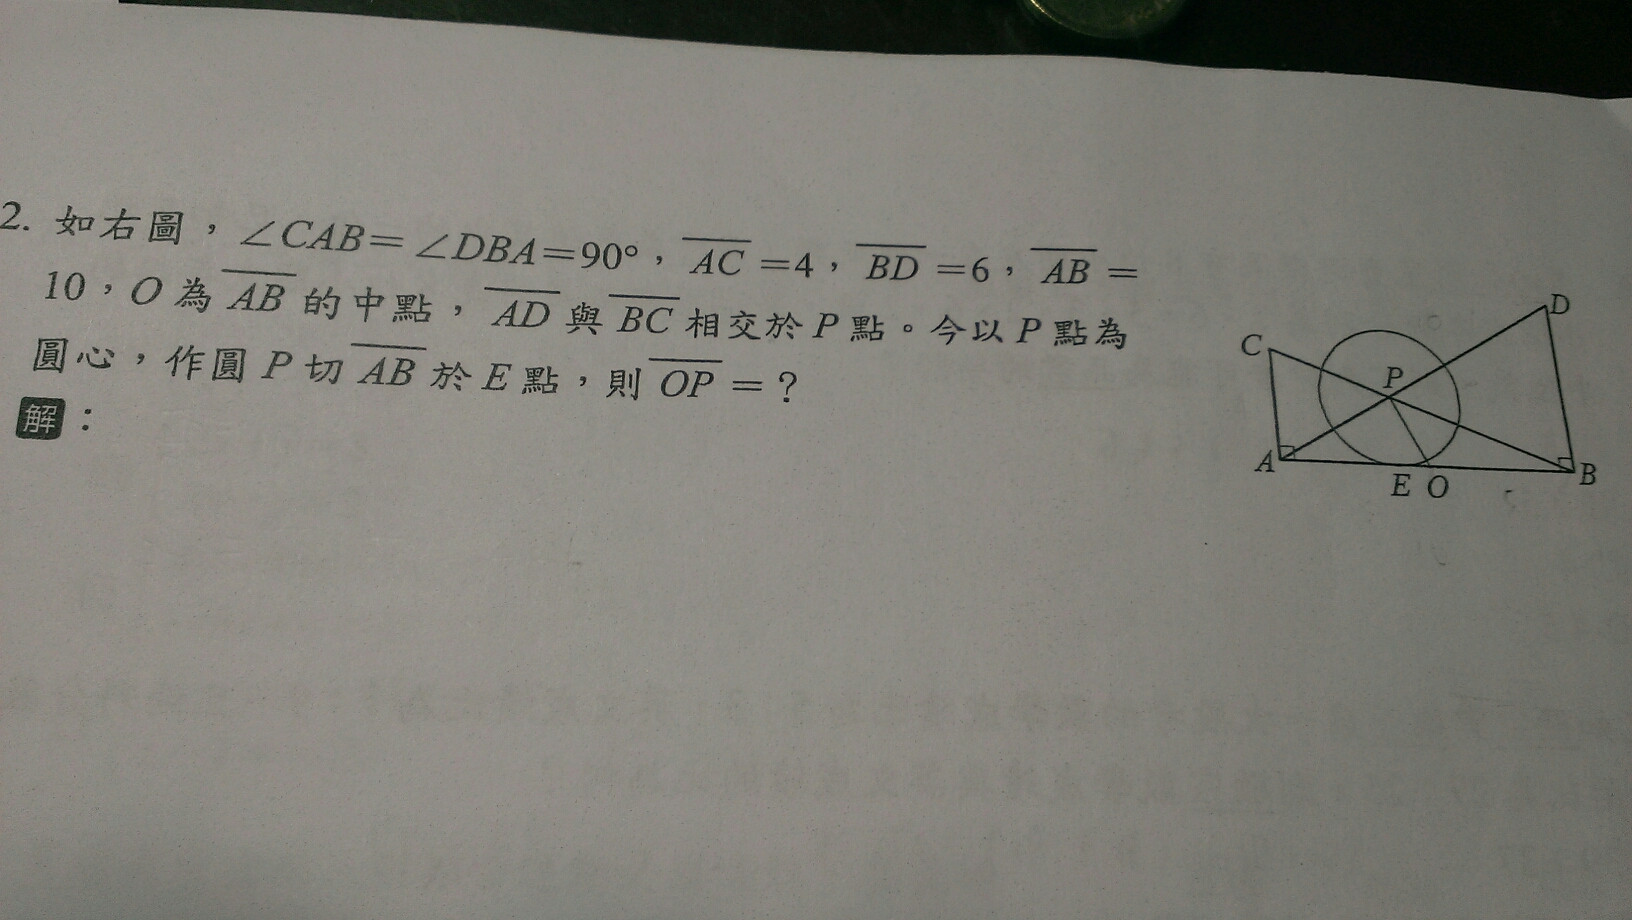 2. 如右圖，∠CAB=∠DBA=90°，AC=4，BD=6，AB=
10，O為AB的中點，AD與BC相交於P點。今以P點為
圓心，作圓P切AB於E點，則OP=？
解：
D
C
P
A
E O
B